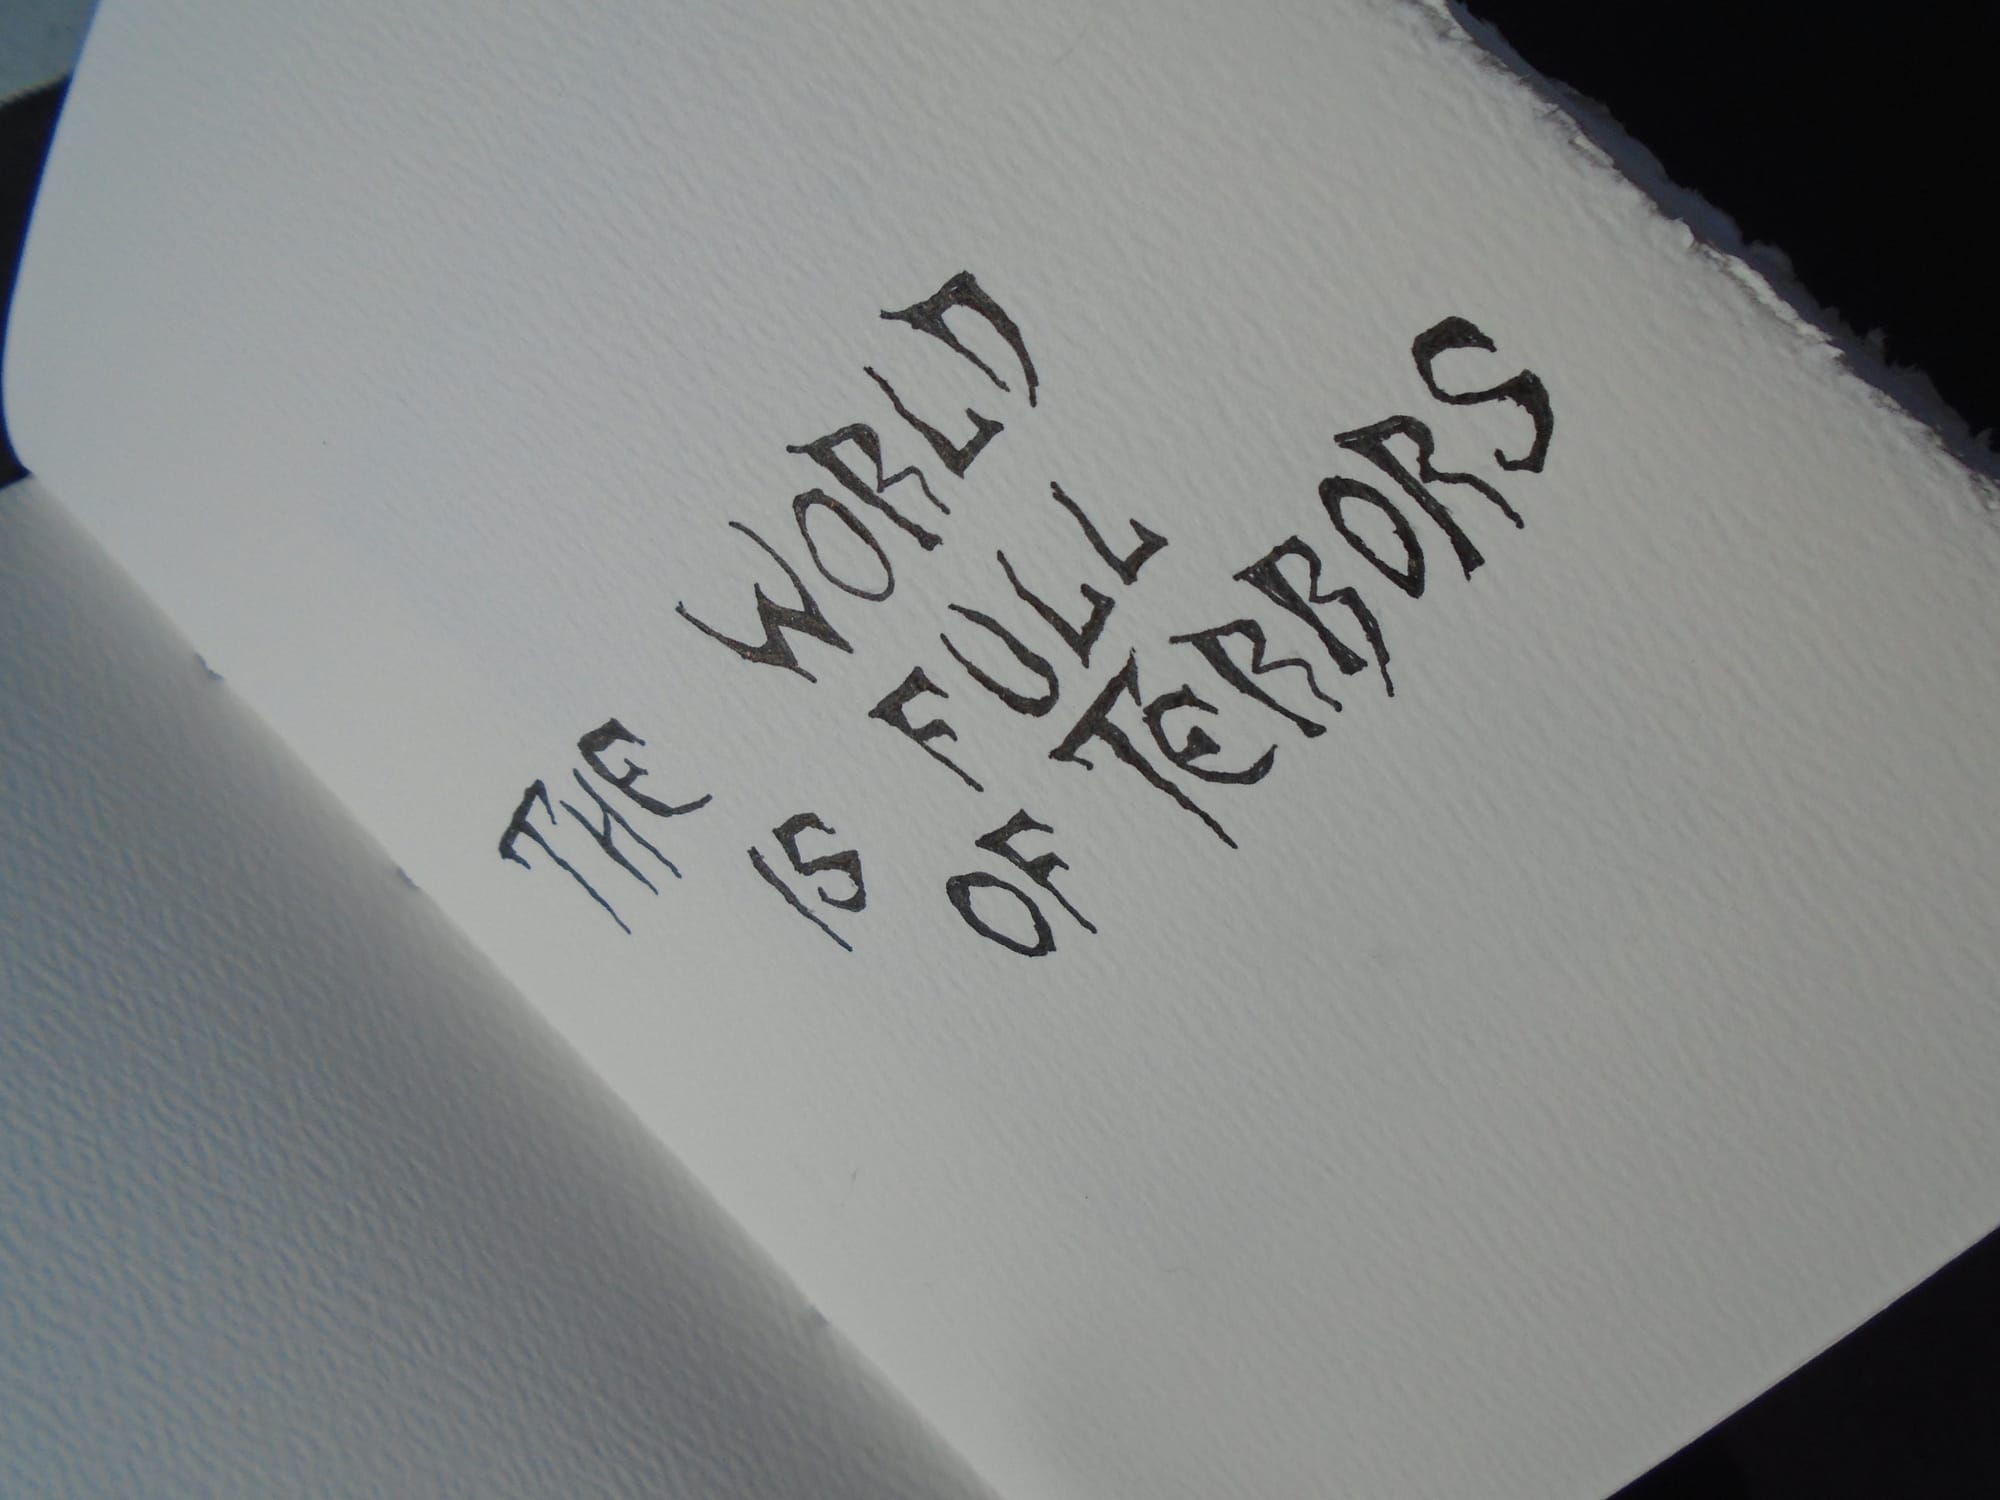 THE WORLD
IS FULL
OF TERRORS